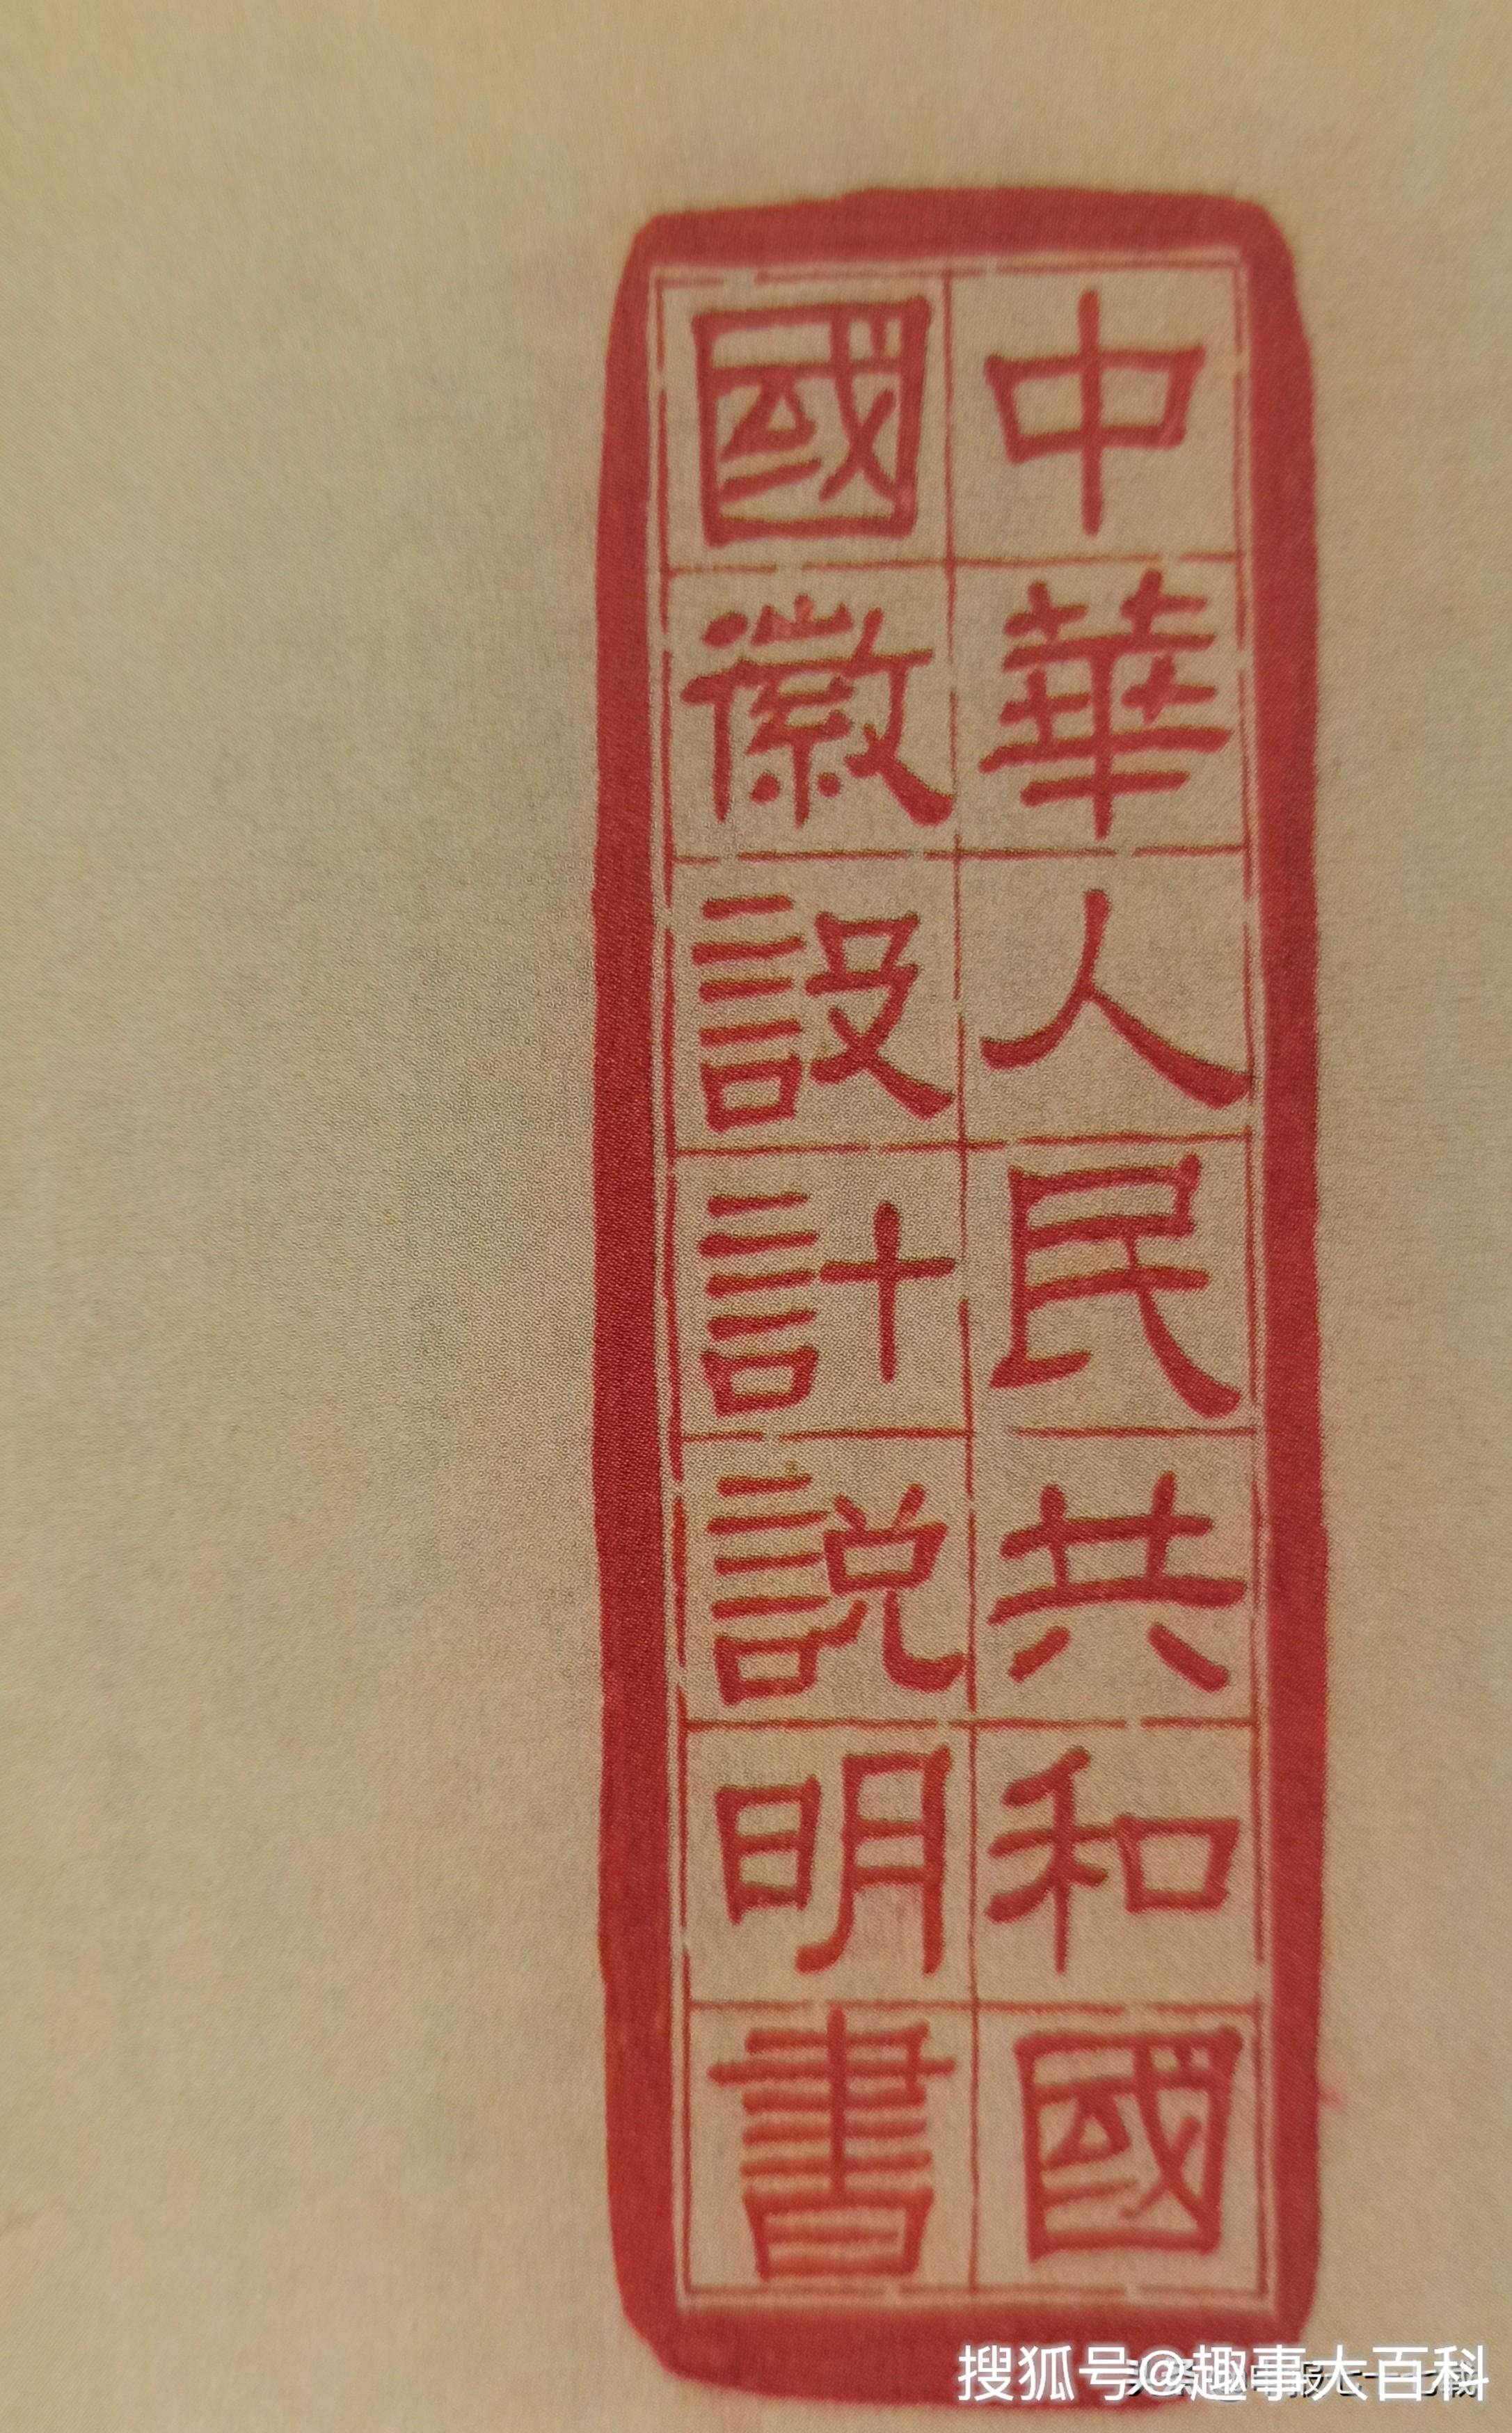 中華人民共和國
國徽設計説明書
搜狐号@趣事大百科